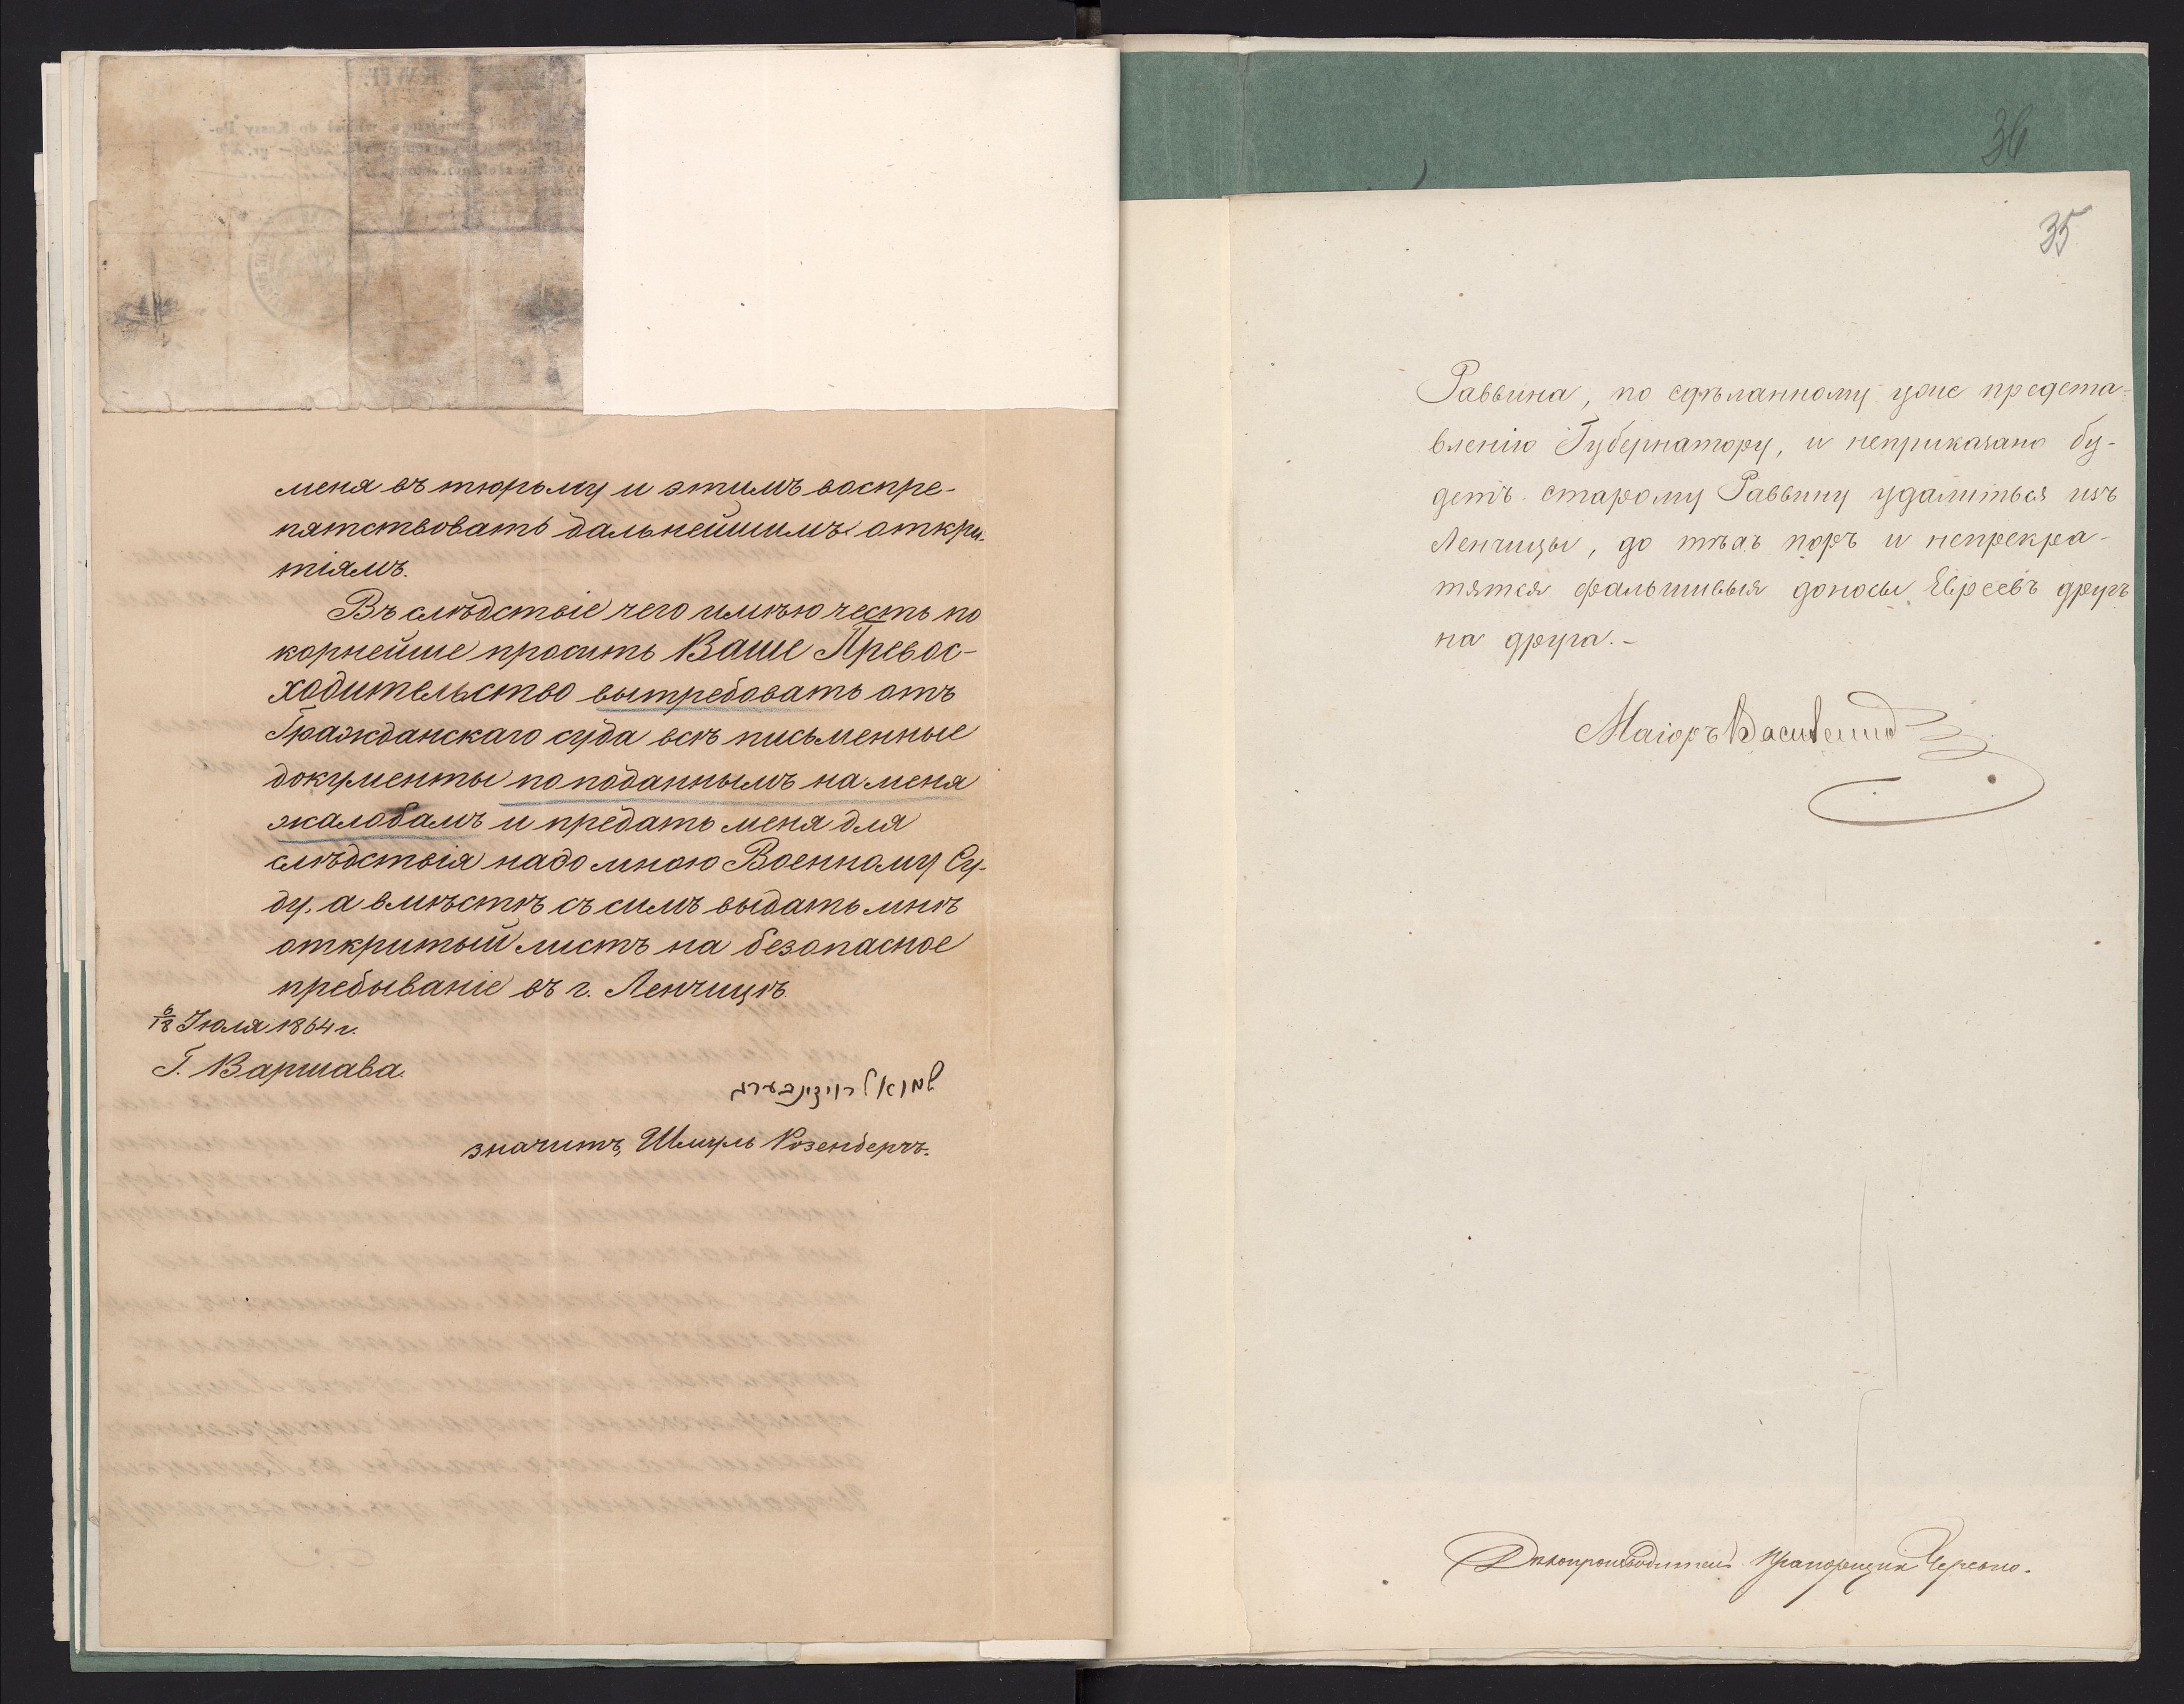 меня въ тюрьму и этимъ воспре-
пятствовать дальнейшимъ откры-
тіямъ.
Въ слѣдствіе чего имѣю честь по
корнейше просить Ваше Превос-
ходительство вытребовать отъ
Гражданскаго суда всѣ письменные
документы по поданнымъ на меня
жалобамъ и предать меня для
слѣдствія надо мною Военному Су-
ду, а вмѣстѣ съ симъ выдать мнѣ
открытый листъ на безопасное
пребываніе въ г. Ленчицѣ.
6/18 Іюля 1864 г.
Г. Варшава.
שמואל רויזינבערג
значитъ, Шмуль Розенбергъ.
36
35
Раввина, по сдѣланному уже предста-
вленію Губернатору, и неприказано бу-
детъ старому Раввину удалиться изъ
Ленчицы, до тѣхъ поръ и непрекра-
тятся фальшивыя доносы Евреевъ другъ
на друга.-
Маіоръ
Дѣлопроизводитель Прапорщикъ